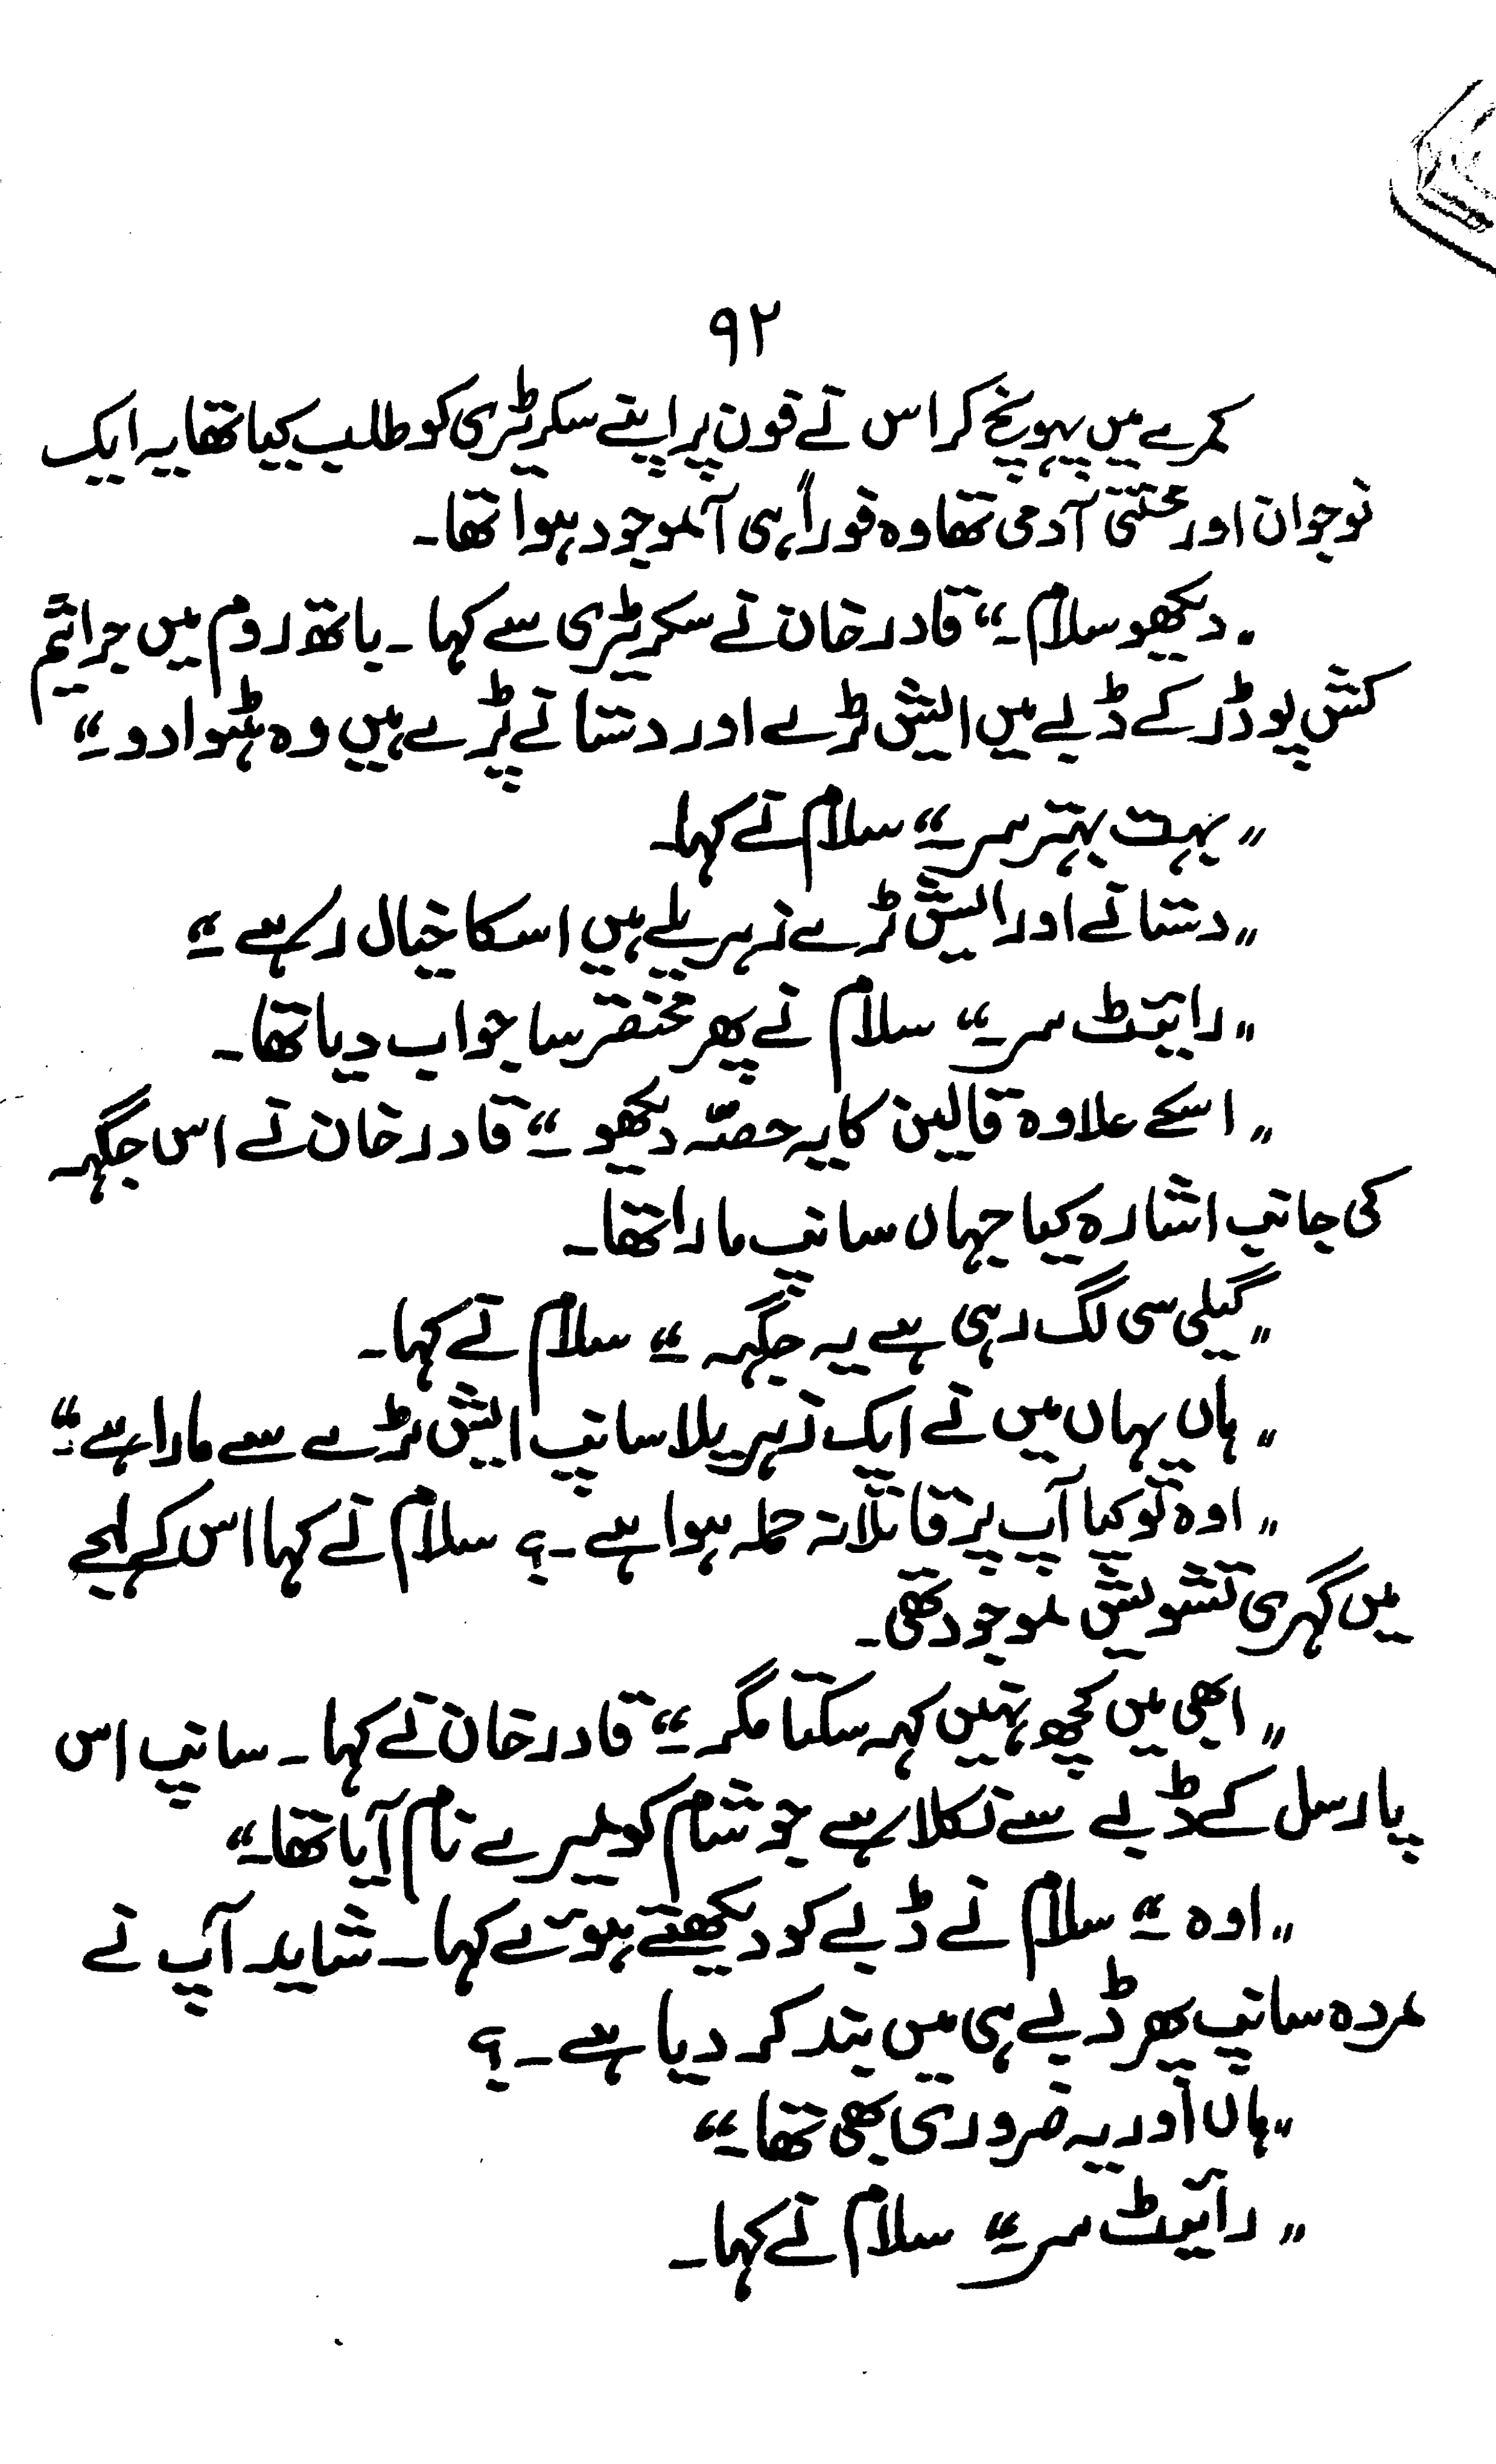 ۹۲
کمرے میں پہونچ کر اس نے فون پر اپنے سکریٹری کو طلب کیا تھا یہ ایک
نوجوان اور محنتی آدمی تھا وہ فوراً ہی آموجود ہوا تھا۔
"دیکھو سلام۔" قادر خان نے سکریٹری سے کہا۔ باتھ روم میں جراثیم
کش پوڈر کے ڈبے میں ایش ٹرے اور دستانے پڑے ہیں وہ ہٹوا دو۔"
"بہت بہتر سر۔" سلام نے کہا۔
"دستانے اور ایش ٹرے زہریلے ہیں اسکا خیال رہے۔"
"رائیٹ سر۔" سلام نے پھر مختصر سا جواب دیا تھا۔
"اسکے علاوہ قالین کا یہ حصّہ دیکھو۔" قادر خان نے اس جگہہ
کی جانب اشارہ کیا جہاں سانپ مارا تھا۔
"گیلی سی لگ رہی ہے یہ جگہہ۔" سلام نے کہا۔
"ہاں یہاں میں نے ایک زہریلا سانپ ایش ٹرے سے مارا ہے۔"
"اوہ تو کیا آپ پر قاتلانہ حملہ ہوا ہے۔؟ سلام نے کہا اس کے لہجے
میں گہری تشویش موجود تھی۔
"ابھی میں کچھ نہیں کہہ سکتا مگر۔" قادر خان نے کہا۔ سانپ اس
پارسل کے ڈبے سے نکلا ہے جو شام کو میرے نام آیا تھا۔"
"اوہ۔" سلام نے ڈبے کو دیکھتے ہوئے کہا۔ شاید آپ نے
مردہ سانپ پھر ڈبے ہی میں بند کر دیا ہے۔؟
"ہاں اور یہ ضروری بھی تھا۔"
"رائیٹ سر۔" سلام نے کہا۔